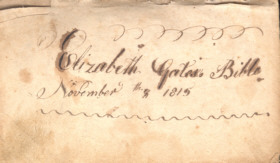 Elizabeth Gates Bible
November 8 1815